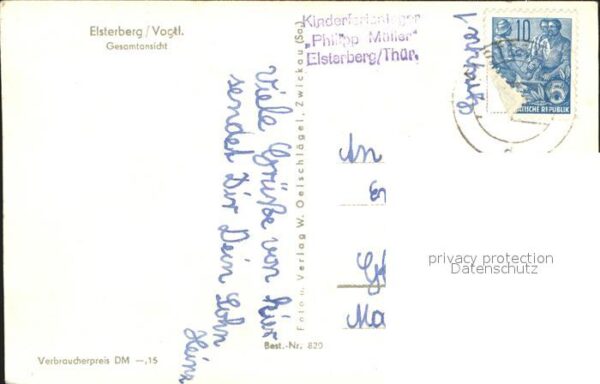 Elsterberg / Vogtl.
Gesamtansicht
Kinderferienlager
„Philipp Müller"
Elsterberg/Thür.
Gruppe 1
10
5
DEUTSCHE REPUBLIK
Viele Grüße von hier
sendet Dir Dein Sohn
Heinz
Foto u. Verlag W. Oelschlägel, Zwickau (Sa.)
An
Ma
privacy protection
Datenschutz
Best.-Nr. 820
Verbraucherpreis DM —,15